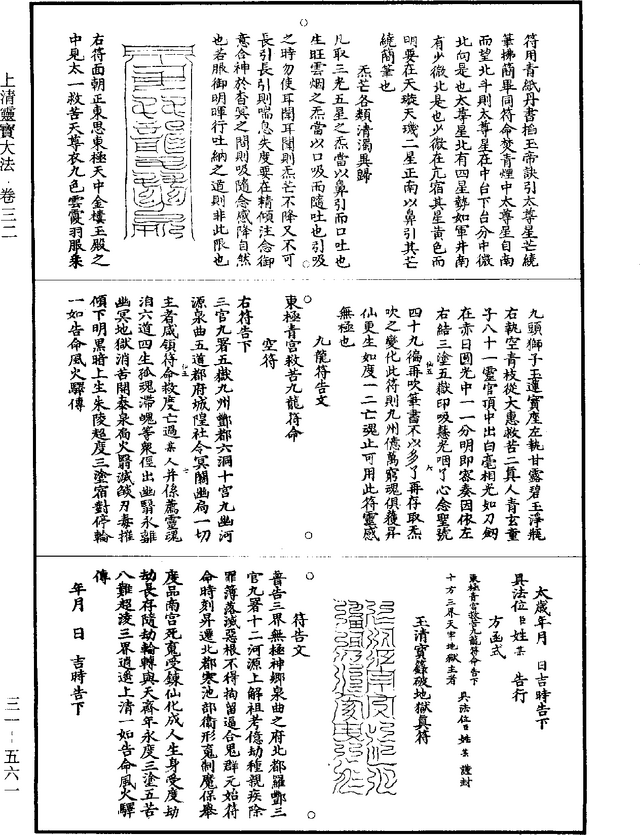 上清靈寶大法 卷三二
符用青紙丹書掐玉帝訣引太尊星芒繞
筆拂簡畢同符命焚青煙中太尊星自南
而望北斗則太尊星在中台下台分中微
北向是也太尊星北有四星勢如軍井南
有少微北是也少微在亢宿其星黃色而
明要在天璇天璣二星正南以鼻引其芒
繞簡筆也
炁芒各類清濁異歸
凡取三光五星之炁當以鼻引而口吐也
生旺雲烟之炁當以口吸而隨吐也引吸
之時勿使耳聞耳聞則炁芒不降又不可
長引長引則喘息失度要在精傾注念御
意合神於杳冥之間則吸隨念感降自然
也若服御明暉行吐納之道則非此限也
右符面朝正東思東極天中金樓玉殿之
中見太一救苦天尊衣九色雲霞羽服乘
九頭獅子玉蓮寶座左執甘露碧玉淨瓶
右執空青枝從大惠救苦二真人青玄童
子八十一靈官頂中出白毫相光如刀劒
在赤日圓光中一一分明即密奏因依左
右結三塗五嶽印吸慧光咽了心念聖號
四十九徧再吹筆書不以多了再存取炁
吹之變化此符則九州億萬窮魂俱獲昇
仙更生如度一二亡魂止可用此符靈感
無極也
九龍符告文
空符
東極青宮救苦九龍符命
右符告下
三官九署五嶽九州酆都六洞十宮九幽河
源泉曲五道都府城隍社令冥關幽局一切
主者咸領符命救度亡過某人并係薦靈魂
洎六道四生孤魂滯魄等衆徑出幽翳永離
幽冥地獄消苦開泰泉扃火翳滅燄刃毒摧
傾下明黑時上生朱陵超度三塗宿對停輪
一如告命風火驛傳
太歲年月 日吉時告下
具法位臣姓某 告行
方函式
東極青宮救苦九龍符命告下 具法位臣姓某 謹封
十方三界天牢地獄主者
玉清寶籙破地獄真符
符告文
普告三界無極神鄉泉曲之府北都羅酆三
官九署十二河源上解祖考億劫種親疾除
罪簿落滅惡根不得拘留逼合鬼群元始符
命時刻昇遷北都寒池部衛形寃制魔保舉
度品南宮死寃受鍊仙化成人生身受度劫
劫長存隨劫輪轉與天齊年永度三塗五苦
八難超淩三界逍遙上清一如告命風火驛
傳
年月 日 吉時告下
三一–五六一